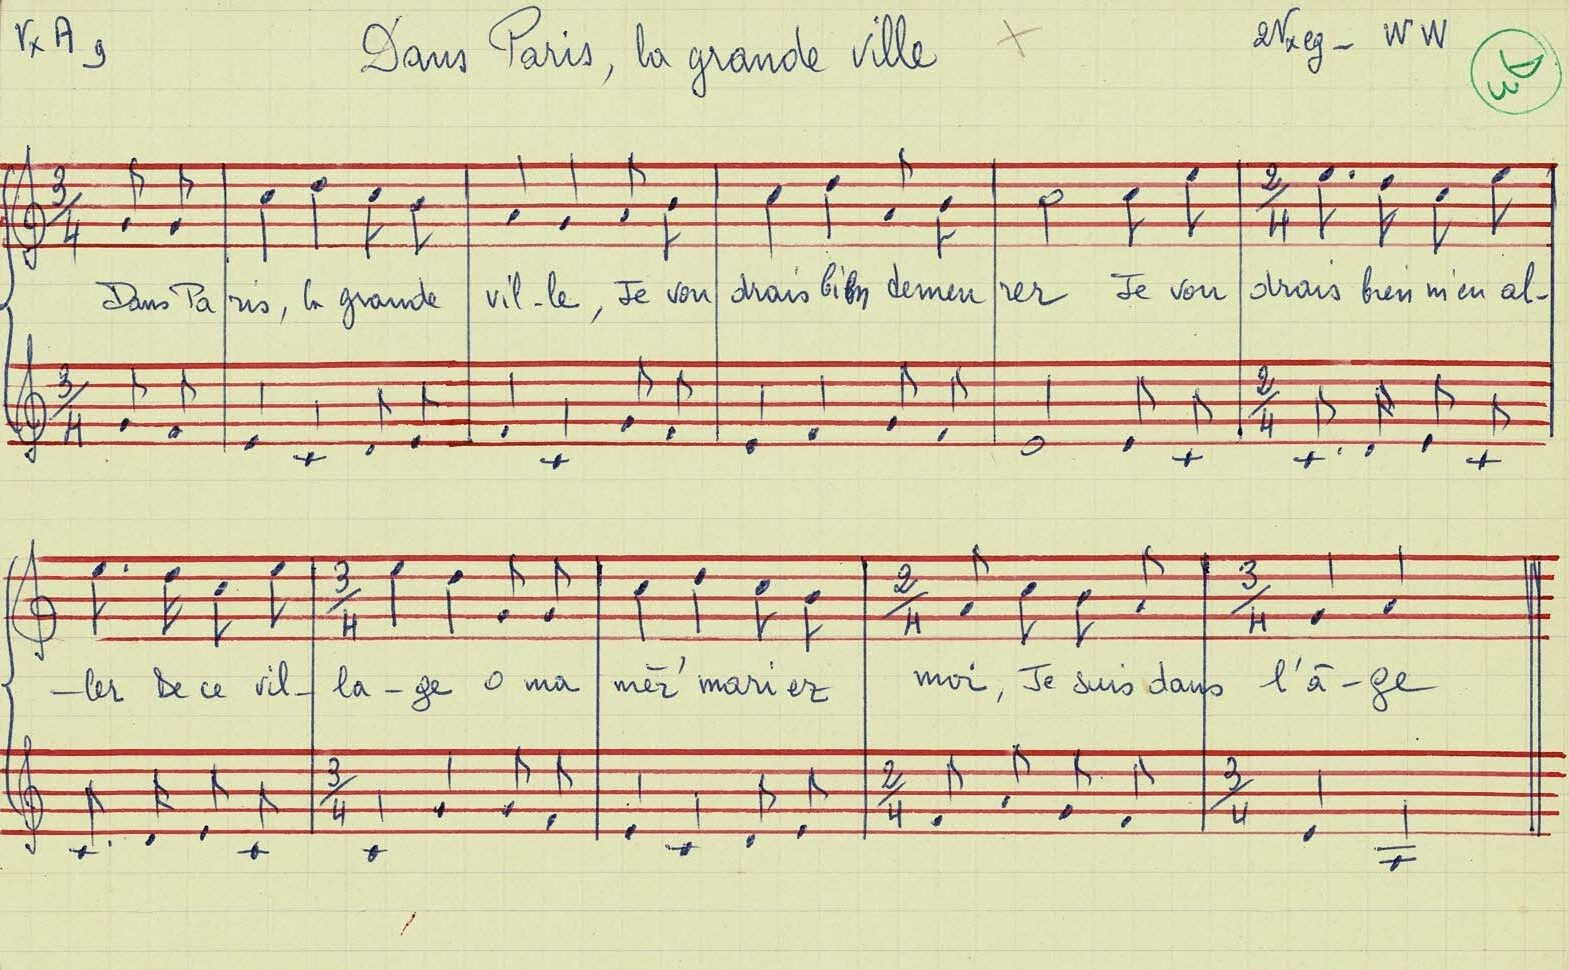 Dans Paris, la grande ville
WW
D3
3/4 2/4
Dans Pa ris, la grande vil-le, Je vou drais bien demeu rer Je vou drais bien m'en al-
3/4 2/4
3/4 2/4 3/4
-ler De ce vil- la-ge O ma mèr' mariez moi, Je suis dans l'â-ge
3/4 2/4 3/4